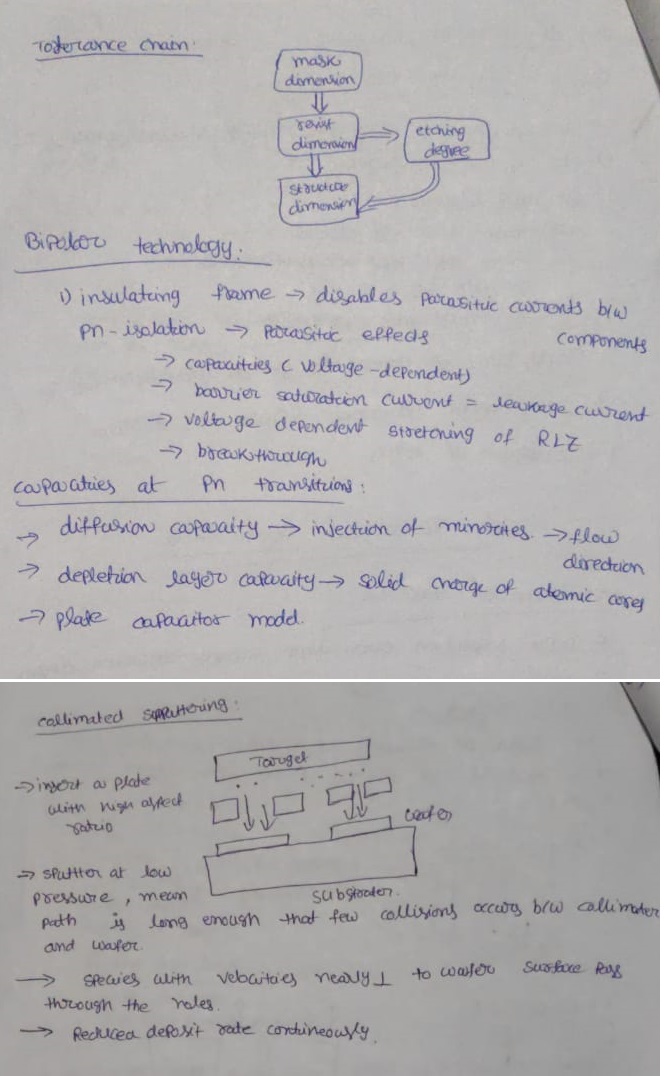 Tolerance chain:
mask
dimension
resist
dimension
etching
degree
structure
dimension
Bipolar technology:
1) insulating frame → disables parasitic currents b/w
components
pn-isolation → parasitic effects
→ capacities (voltage-dependent)
→ barrier saturation current = leakage current
→ voltage dependent stretching of RLZ
→ breakthrough
capacities at pn transitions:
→ diffusion capacity → injection of minorities → flow
direction
→ depletion layer capacity → solid charge of atomic cores
→ plate capacitor model.
callimated sputtering:
Target
→ insert a plate
with high aspect
ratio
wafer
substrater.
→ sputter at low
pressure, mean
path is long enough that few collisions occurs b/w callimater
and wafer.
→ species with velocities nearly ⊥ to wafer surface pass
through the holes.
→ Reduced deposit rate contineously.